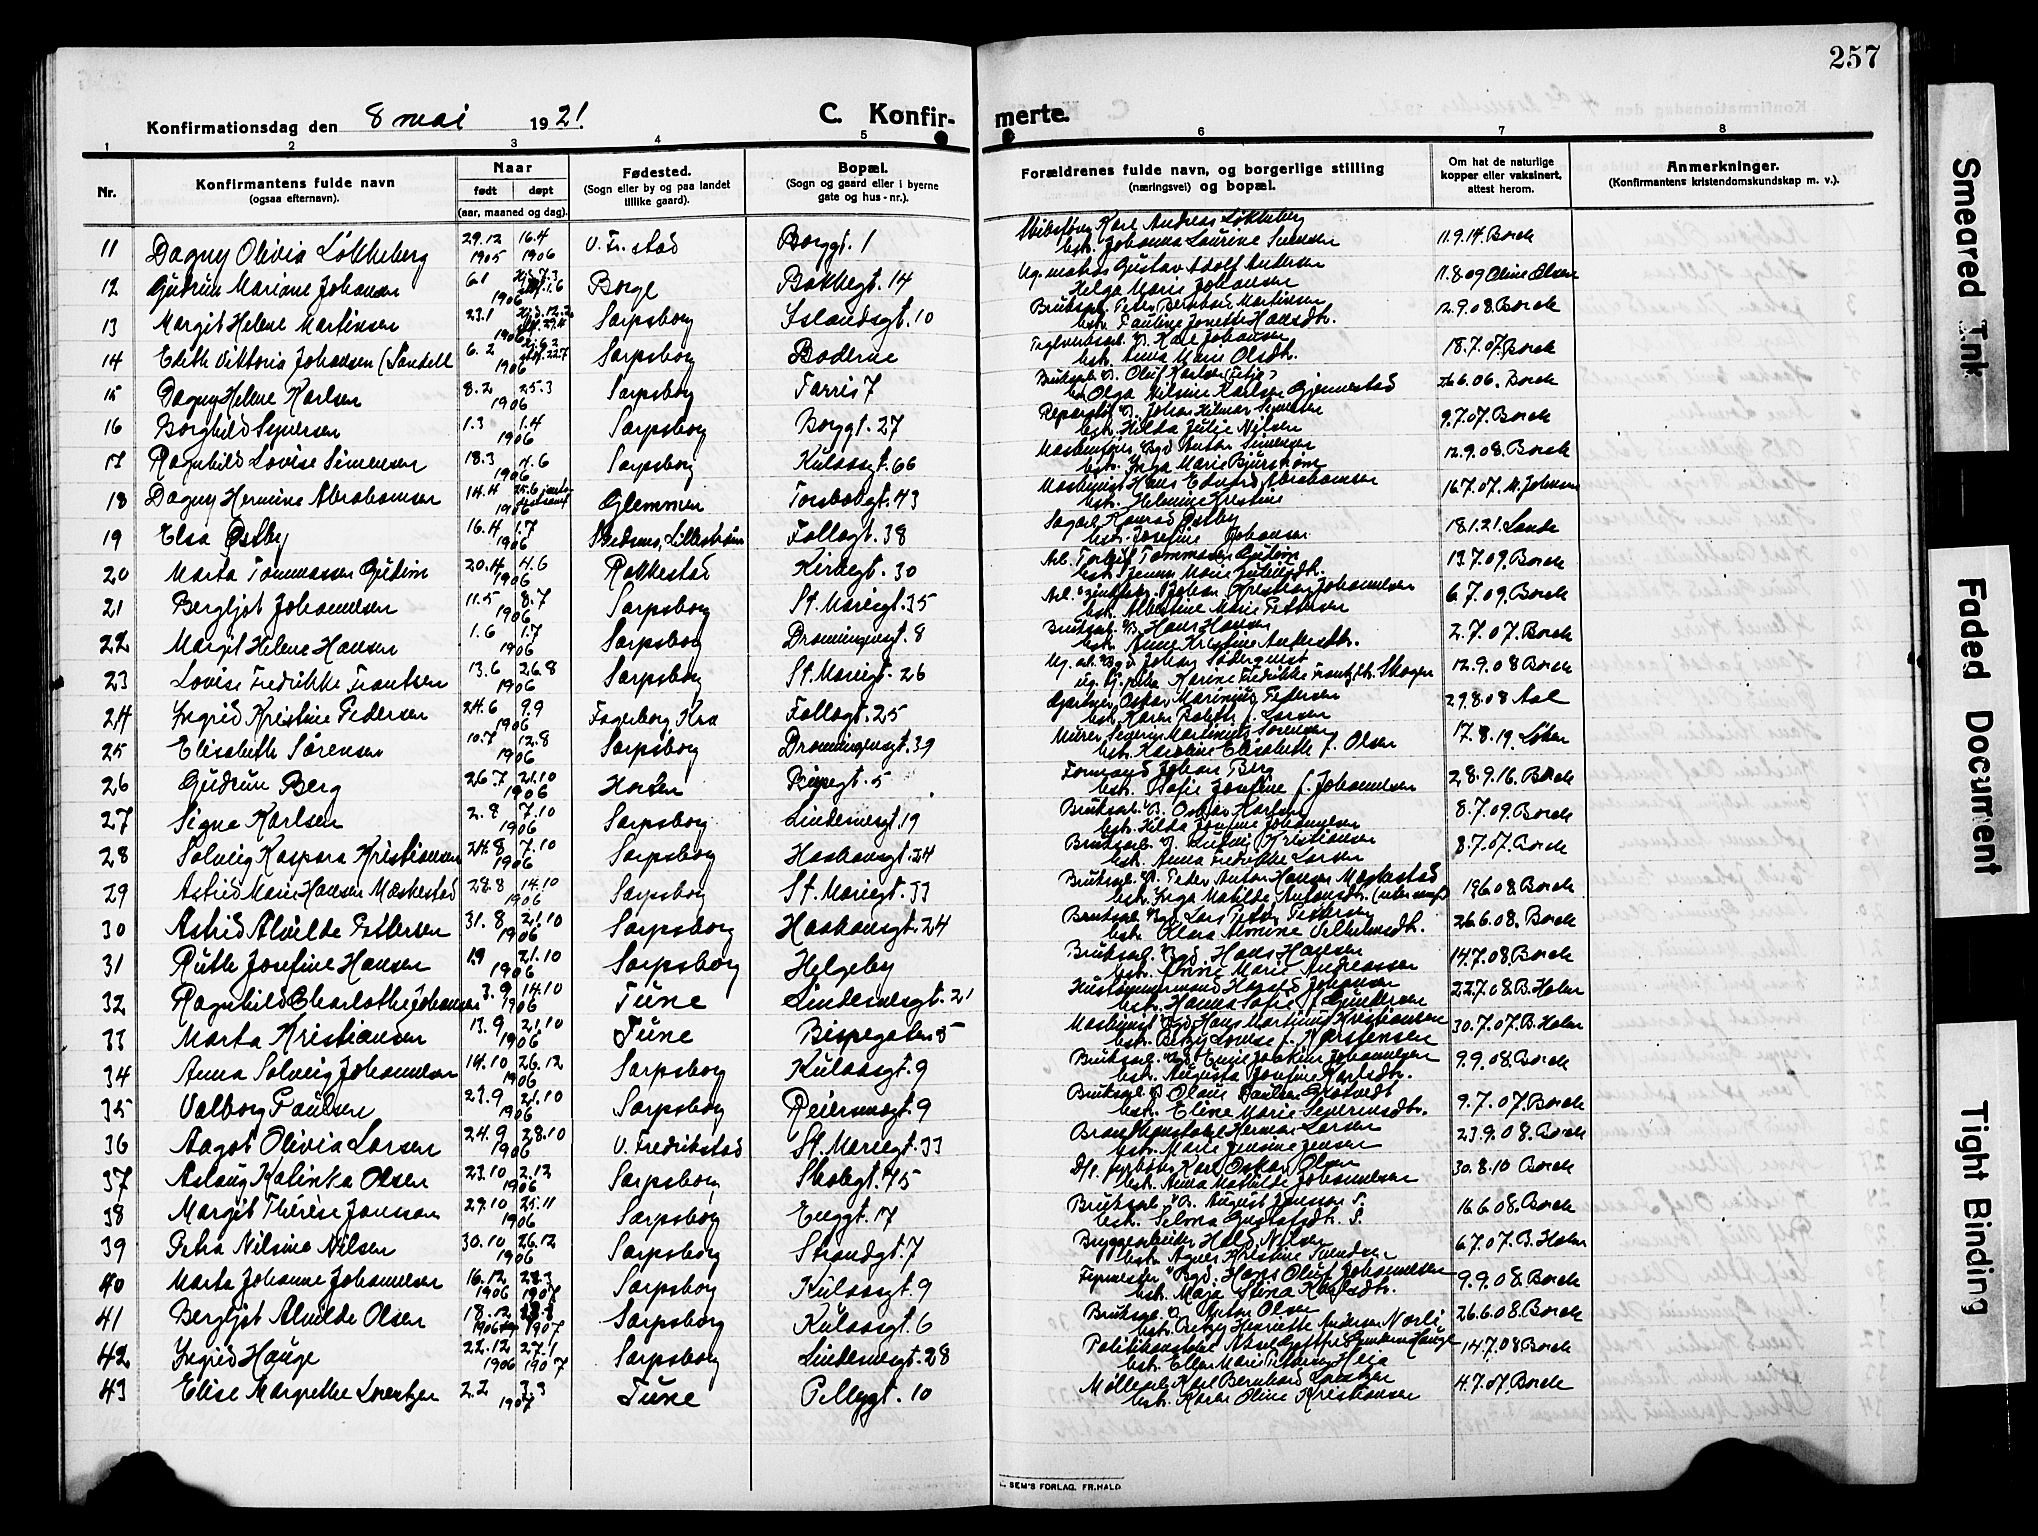 257
Konfirmationsdag den 8 mai 1921
C. Konfir-
merte.
1 2 3 4 5 6 7 8
Nr.
Konfirmantens fulde navn
(ogsaa efternavn).
Naar
født døpt
(aar, maaned og dag).
Fødested.
(Sogn eller by og paa landet
tillike gaard).
Bopæl.
(Sogn og gaard eller i byerne
gate og hus-nr.).
Forældrenes fulde navn, og borgerlige stilling
(næringsvei) og bopæl.
Om hat de naturlige
kopper eller vaksinert,
attest herom.
Anmerkninger.
(Konfirmantens kristendomskundskap m. v.).
11 Dagny Olivia Løkkeberg 29.12 1905 16.4 1906 V. Fr.stad Borggt. 1 Karl Andreas Løkkeberg 11.9.14. Borch
hstr. Johanne Laurine Svensen
12 Gudrun Mariane Johansen 6.1 1906 Borge Bakkegt. 14 Ug. matros Gustav Adolf Andersen 11.8.09 Oline Olsen
Helga Marie Johansen
13 Margit Helene Martinsen 23.1 1906 Sarpsborg Islandsgt. 10 Bruksarb. Peter Bernhard Martinsen 12.9.08. Borch
hstr. Pauline Josette Hansdtr.
14 Edith Viktoria Johansen (Sandell 6.2 1906 Sarpsborg Boderne Teglverksarb. Karl Johansen 18.7.07. Borch
hstr. Anna Marie Olsdtr.
15 Dagny Helene Karlsen 8.2 25.3 1906 Sarpsborg Tarris 7 Bruksarb. Oluf Karlsen 26.6.06. Borch
Olga Nilsine Karlsen Gjennestad
16 Borghild Syversen 1.3 1.4 1906 Sarpsborg Borggt. 27 Reparatør Johan Hilmar Syversen 9.7.07. Borch
hstr. Hilda Julie Nilsen
17 Ragnhild Lovise Simensen 18.3 4.6 1906 Sarpsborg Kulaasgt. 66 Anton Simensen 12.9.08. Borch
hstr. Inga Marie Bjurstrøm
18 Dagny Hermine Abrahamsen 14.4 1906 Glemmen Torsbækgt. 43 Maskinist Hans Edvard Abrahamsen 16.7.07. M. Johnsen
hstr. Helenine Kristine
19 Elsa Østby 16.4 1.7 1906 Skedsmo, Lillestrøm Follogt. 38 Sagarb. Konrad Østby 18.1.21. Sande
hstr. Josefine Johansen
20 Marta Tommassen Gutim 20.4 4.6 1906 Rakkestad Kirkegt. 30 Arb. Torleif Tommassen Gutim 13.7.09. Borch
hstr. Jenny Marie
21 Bergljot Johannesen 11.5 8.7 1906 Sarpsborg St. Mariegt. 35 Johan Kristian Johannesen 6.7.09. Borch
hstr. Albertine Marie Pettersen
22 Margit Helene Hansen 1.6 1.7 1906 Sarpsborg Dronningensgt. 8 Bruksarb. Hans Hansen 2.7.07. Borch
hstr. Anne Kristine Andersdtr.
23 Lovise Fredrikke Frantsen 13.6 26.8 1906 Sarpsborg St. Mariegt. 26 Ug. arb. Johan Söderquist 12.9.08 Borch
Karine Fredrikke Frantzdtr. Skogen
24 Ingrid Kristine Pedersen 24.6 9.9 1906 Fagerborg Kra Follogt. 25 Gjartner Oskar Marinius Pedersen 29.8.08 Aal
hstr. Karen Bolette f. Larsen
25 Elisabeth Sørensen 10.7 12.8 1906 Sarpsborg Dronningensgt. 39 Murer Severin Martinius Sørensen 17.8.19. Løken
hstr. Karoline Elisabeth f. Olsen
26 Gudrun Berg 26.7 21.10 1906 Horten Bispegt. 5 Formand Johan Berg 28.9.16. Borch
hstr. Sofie Josefine f. Johannesen
27 Signe Karlsen 2.8 7.10 1906 Sarpsborg Lindemesgt. 19 Bruksarb. Oskar Karlsen 8.7.09. Borch
hstr. Hilda Josefine Johannesen
28 Solveig Kaspara Kristiansen 24.8 7.10 1906 Sarpsborg Haakonsgt. 24 Bruksarb. Ludvig Kristiansen 8.7.07. Borch
hstr. Anna Fredrikke Larsen
29 Astrid Marie Hansen Mæskestad 28.8 14.10 1906 Sarpsborg St. Mariegt. 33 Bruksarb. Peder Anton Hansen Mæskestad 19.6.08. Borch
hstr. Inga Matilde Antonsdtr.
30 Astrid Alvilde Pettersen 31.8 21.10 1906 Sarpsborg Haakonsgt. 24 Bruksarb. Lars Peter Pettersen 26.6.08. Borch
hstr. Klara Almine Vilhelmsdtr.
31 Ruth Josefine Hansen 1.9 21.10 1906 Sarpsborg Helgeby Bruksarb. Hans Hansen 14.7.08. Borch
hstr. Anne Marie Andreassen
32 Ragnhild Charlotte Johansen 3.9 14.10 1906 Tune Lindemesgt. 21 Hustømmermand Harald Johansen 22.7.08. B. Holm
hstr. Hanna Sofie f. Gundersen
33 Marta Kristiansen 13.9 21.10 1906 Tune Bispegaten 5 Maskinist Hans Martinius Kristiansen 30.7.07. B. Holm
hstr. Betzy Lovise f. Karstensen
34 Anna Solveig Johannesen 14.10 26.12 1906 Sarpsborg Kulaasgt. 9 Bruksarb. Emil Joakim Johannesen 9.9.08. Borch
hstr. Augusta Josefine Karlsdtr.
35 Valborg Paulsen 23.9 21.10 1906 Sarpsborg Reiersensgt. 9 Bruksarb. Olaus Paulsen Grøtvedt 9.7.07. Borch
hstr. Eline Marie Severinsdtr.
36 Aagot Olivia Larsen 24.9 28.10 1906 V. Fredrikstad St. Mariegt. 33 Brandkonstabel Herman Larsen 23.9.08. Borch
hstr. Marie Jensine Jensen
37 Aslaug Kalinka Olsen 23.10 2.12 1906 Sarpsborg Skolegt. 75 D/s. fyrbøter Karl Oskar Olsen 30.8.10 Borch
hstr. Anna Mathilde Johannesen
38 Margit Thérèse Jonsson 29.10 25.11 1906 Sarpsborg Enggt. 17 Bruksarb. August Jonsson S. 16.6.08. Borch
hstr. Selma Gustafsdtr. S.
39 Petra Nilsine Nilsen 30.10 26.12 1906 Sarpsborg Strandgt. 7 Bryggearbeider Hald. Nilsen 6.7.07. B. Holm
hstr. Agnes Kristine Svendsen
40 Marta Johanne Johannesen 16.12 1906 28.3 1907 Sarpsborg Kulaasgt. 9 Fyrmester Hans Oluf Johannesen 9.9.08. Borch
hstr. Maja Stina Karlsdtr.
41 Bergljot Alvilde Olsen 18.12 1906 1907 Sarpsborg Kulaasgt. 6 Bruksarb. Anton Olsen 26.6.08. Borch
hstr. Betzy Henriette Andersen Norli
42 Ingrid Hauge 22.12 1906 27.1 1907 Sarpsborg Lindemesgt. 28 Politikonstabel Aksel Gotfred Gundersen Hauge 14.7.08 Borch
hstr. Ellen Marie Heja
43 Elise Margrethe Lorentzen 2.2 3.3 1907 Tune Pellygt. 10 Møllearb. Karl Bernhard Lorentzen 4.7.07. Borch
hstr. Karen Oline Kristiansen
SEM'S FORLAG. FR.HALD
Smeared Ink
Faded Document
Tight Binding